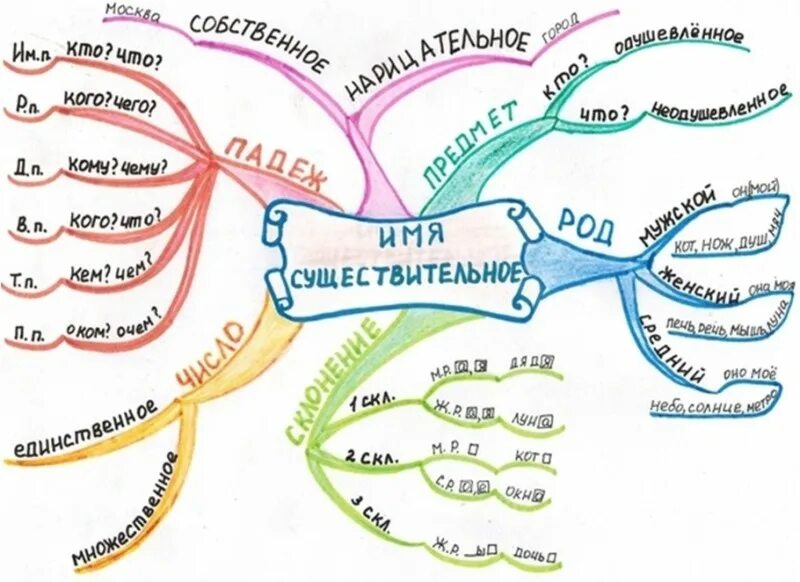 ИМЯ
СУЩЕСТВИТЕЛЬНОЕ
СОБСТВЕННОЕ
Москва
НАРИЦАТЕЛЬНОЕ
город
ПРЕДМЕТ
КТО?
одушевлённое
ЧТО?
неодушевленное
РОД
МУЖСКОЙ
он(мой)
кот, нож, душ, мяч
ЖЕНСКИЙ
она моя
печь, речь, мышь, луна
СРЕДНИЙ
оно моё
небо, солнце, метро
СКЛОНЕНИЕ
1 скл.
М.Р. а, я
дядя
Ж.Р. а, я
луна
2 скл.
М.Р.
кот
С.Р. о, е
окно
3 скл.
Ж.Р. _ь
дочь
ЧИСЛО
единственное
множественное
ПАДЕЖ
Им.п. кто? что?
Р.п. кого? чего?
Д.п. кому? чему?
В.п. кого? что?
Т.п. кем? чем?
П.п. о ком? о чем?